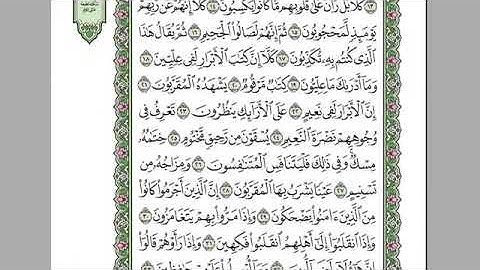 ١٣ كَلَّا ۖ بَلْ ۜ رَانَ عَلَىٰ قُلُوبِهِم مَّا كَانُوا۟ يَكْسِبُونَ ١٤ كَلَّآ إِنَّهُمْ عَن رَّبِّهِمْ
يَوْمَئِذٍ لَّمَحْجُوبُونَ ١٥ ثُمَّ إِنَّهُمْ لَصَالُوا۟ ٱلْجَحِيمِ ١٦ ثُمَّ يُقَالُ هَٰذَا
ٱلَّذِى كُنتُم بِهِۦ تُكَذِّبُونَ ١٧ كَلَّآ إِنَّ كِتَٰبَ ٱلْأَبْرَارِ لَفِى عِلِّيِّينَ ١٨
وَمَآ أَدْرَىٰكَ مَا عِلِّيُّونَ ١٩ كِتَٰبٌ مَّرْقُومٌ ٢٠ يَشْهَدُهُ ٱلْمُقَرَّبُونَ ٢١
إِنَّ ٱلْأَبْرَارَ لَفِى نَعِيمٍ ٢٢ عَلَى ٱلْأَرَآئِكِ يَنظُرُونَ ٢٣ تَعْرِفُ فِى
وُجُوهِهِمْ نَضْرَةَ ٱلنَّعِيمِ ٢٤ يُسْقَوْنَ مِن رَّحِيقٍ مَّخْتُومٍ ٢٥ خِتَٰمُهُۥ
مِسْكٌ ۚ وَفِى ذَٰلِكَ فَلْيَتَنَافَسِ ٱلْمُتَنَٰفِسُونَ ٢٦ وَمِزَاجُهُۥ مِن
تَسْنِيمٍ ٢٧ عَيْنًا يَشْرَبُ بِهَا ٱلْمُقَرَّبُونَ ٢٨ إِنَّ ٱلَّذِينَ أَجْرَمُوا۟ كَانُوا۟
مِنَ ٱلَّذِينَ ءَامَنُوا۟ يَضْحَكُونَ ٢٩ وَإِذَا مَرُّوا۟ بِهِمْ يَتَغَامَزُونَ ٣٠
وَإِذَا ٱنقَلَبُوٓا۟ إِلَىٰٓ أَهْلِهِمُ ٱنقَلَبُوا۟ فَكِهِينَ ٣١ وَإِذَا رَأَوْهُمْ قَالُوٓا۟